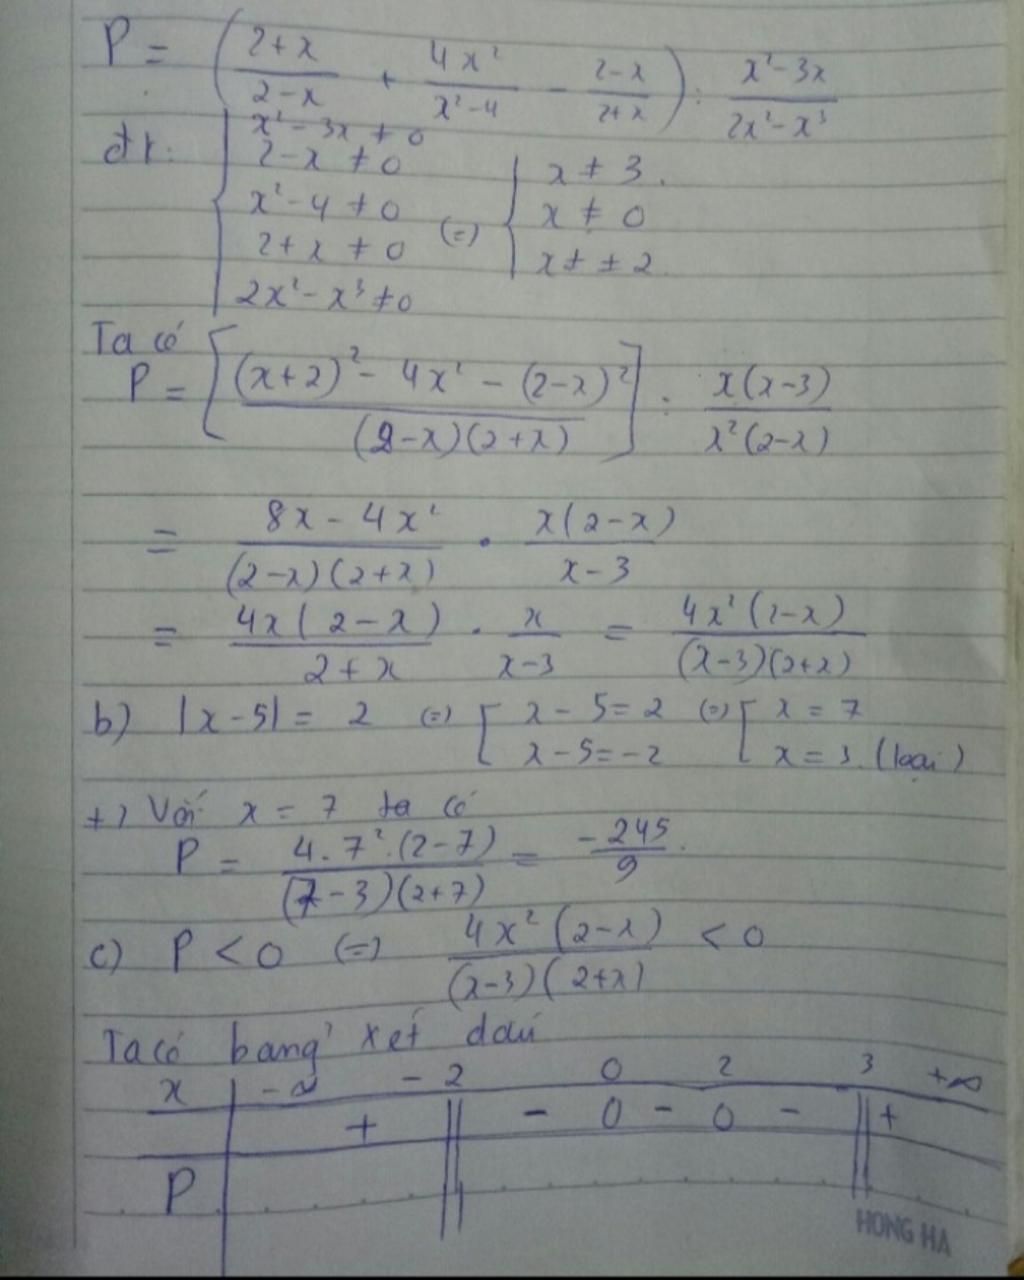 P = ( (2+x)/(2-x) + 4x²/(x²-4) - (2-x)/(2+x) ) : (x²-3x)/(2x²-x³)
đk: { x²-3x ≠ 0
2-x ≠ 0
x²-4 ≠ 0
2+x ≠ 0
2x²-x³ ≠ 0
(=) { x ≠ 3.
x ≠ 0
x ≠ ±2
Ta có
P = [ ((x+2)² - 4x² - (2-x)²) / ((2-x)(2+x)) ] : x(x-3)/(x²(2-x))
= (8x - 4x²)/((2-x)(2+x)) . x(2-x)/(x-3)
= 4x(2-x)/(2+x) . x/(x-3) = 4x²(2-x)/((x-3)(2+x))
b) |x-5| = 2 (=) [ x-5=2 (=) [ x = 7
x-5=-2 x = 3 (loại)
+) Với x = 7 ta có
P = 4.7².(2-7)/((7-3)(2+7)) = -245/9.
c) P < 0 (=) 4x²(2-x)/((x-3)(2+x)) < 0
Ta có bảng xét dấu
x | -∞ -2 0 2 3 +∞
+ || - 0 - 0 - || +
P
HONG HA